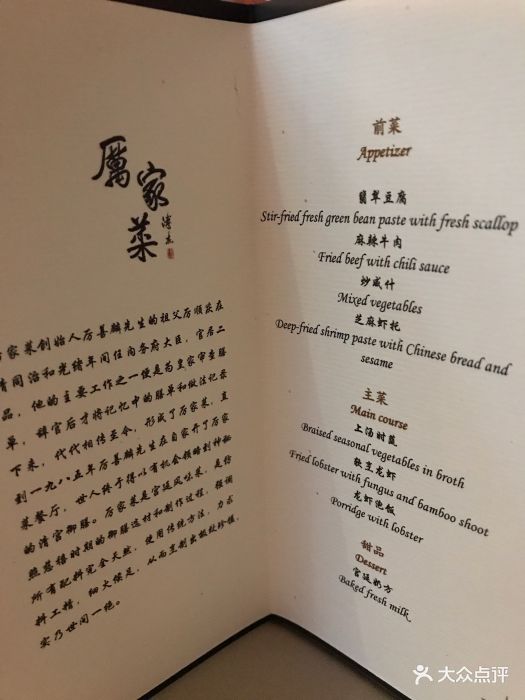 厲家菜
溥杰
厉家菜创始人厉善麟先生的祖父厉顺庆在
清同治和光绪年间任内务府大臣，官居二
品，他的主要工作之一便是为皇家审查膳
单，辞官后才将记忆中的膳单和做法记录
下来，代代相传至今，形成了厉家菜，直
到一九八五年厉善麟先生在自家开了厉家
菜餐厅，世人终于得以有机会领略到神秘
的清宫御膳。厉家菜是宫廷风味菜，是按
照慈禧时期的御膳选材和制作过程，强调
所有配料完全天然，使用传统方法，力求
料工精，细火候足，从而烹制出极致珍馐，
实乃世间一绝。
前菜
Appetizer
翡翠豆腐
Stir-fried fresh green bean paste with fresh scallop
麻辣牛肉
Fried beef with chili sauce
炒咸什
Mixed vegetables
芝麻虾托
Deep-fried shrimp paste with Chinese bread and
sesame
主菜
Main course
上汤时蔬
Braised seasonal vegetables in broth
软烹龙虾
Fried lobster with fungus and bamboo shoot
龙虾泡饭
Porridge with lobster
甜品
Dessert
宫廷奶方
Baked fresh milk
大众点评